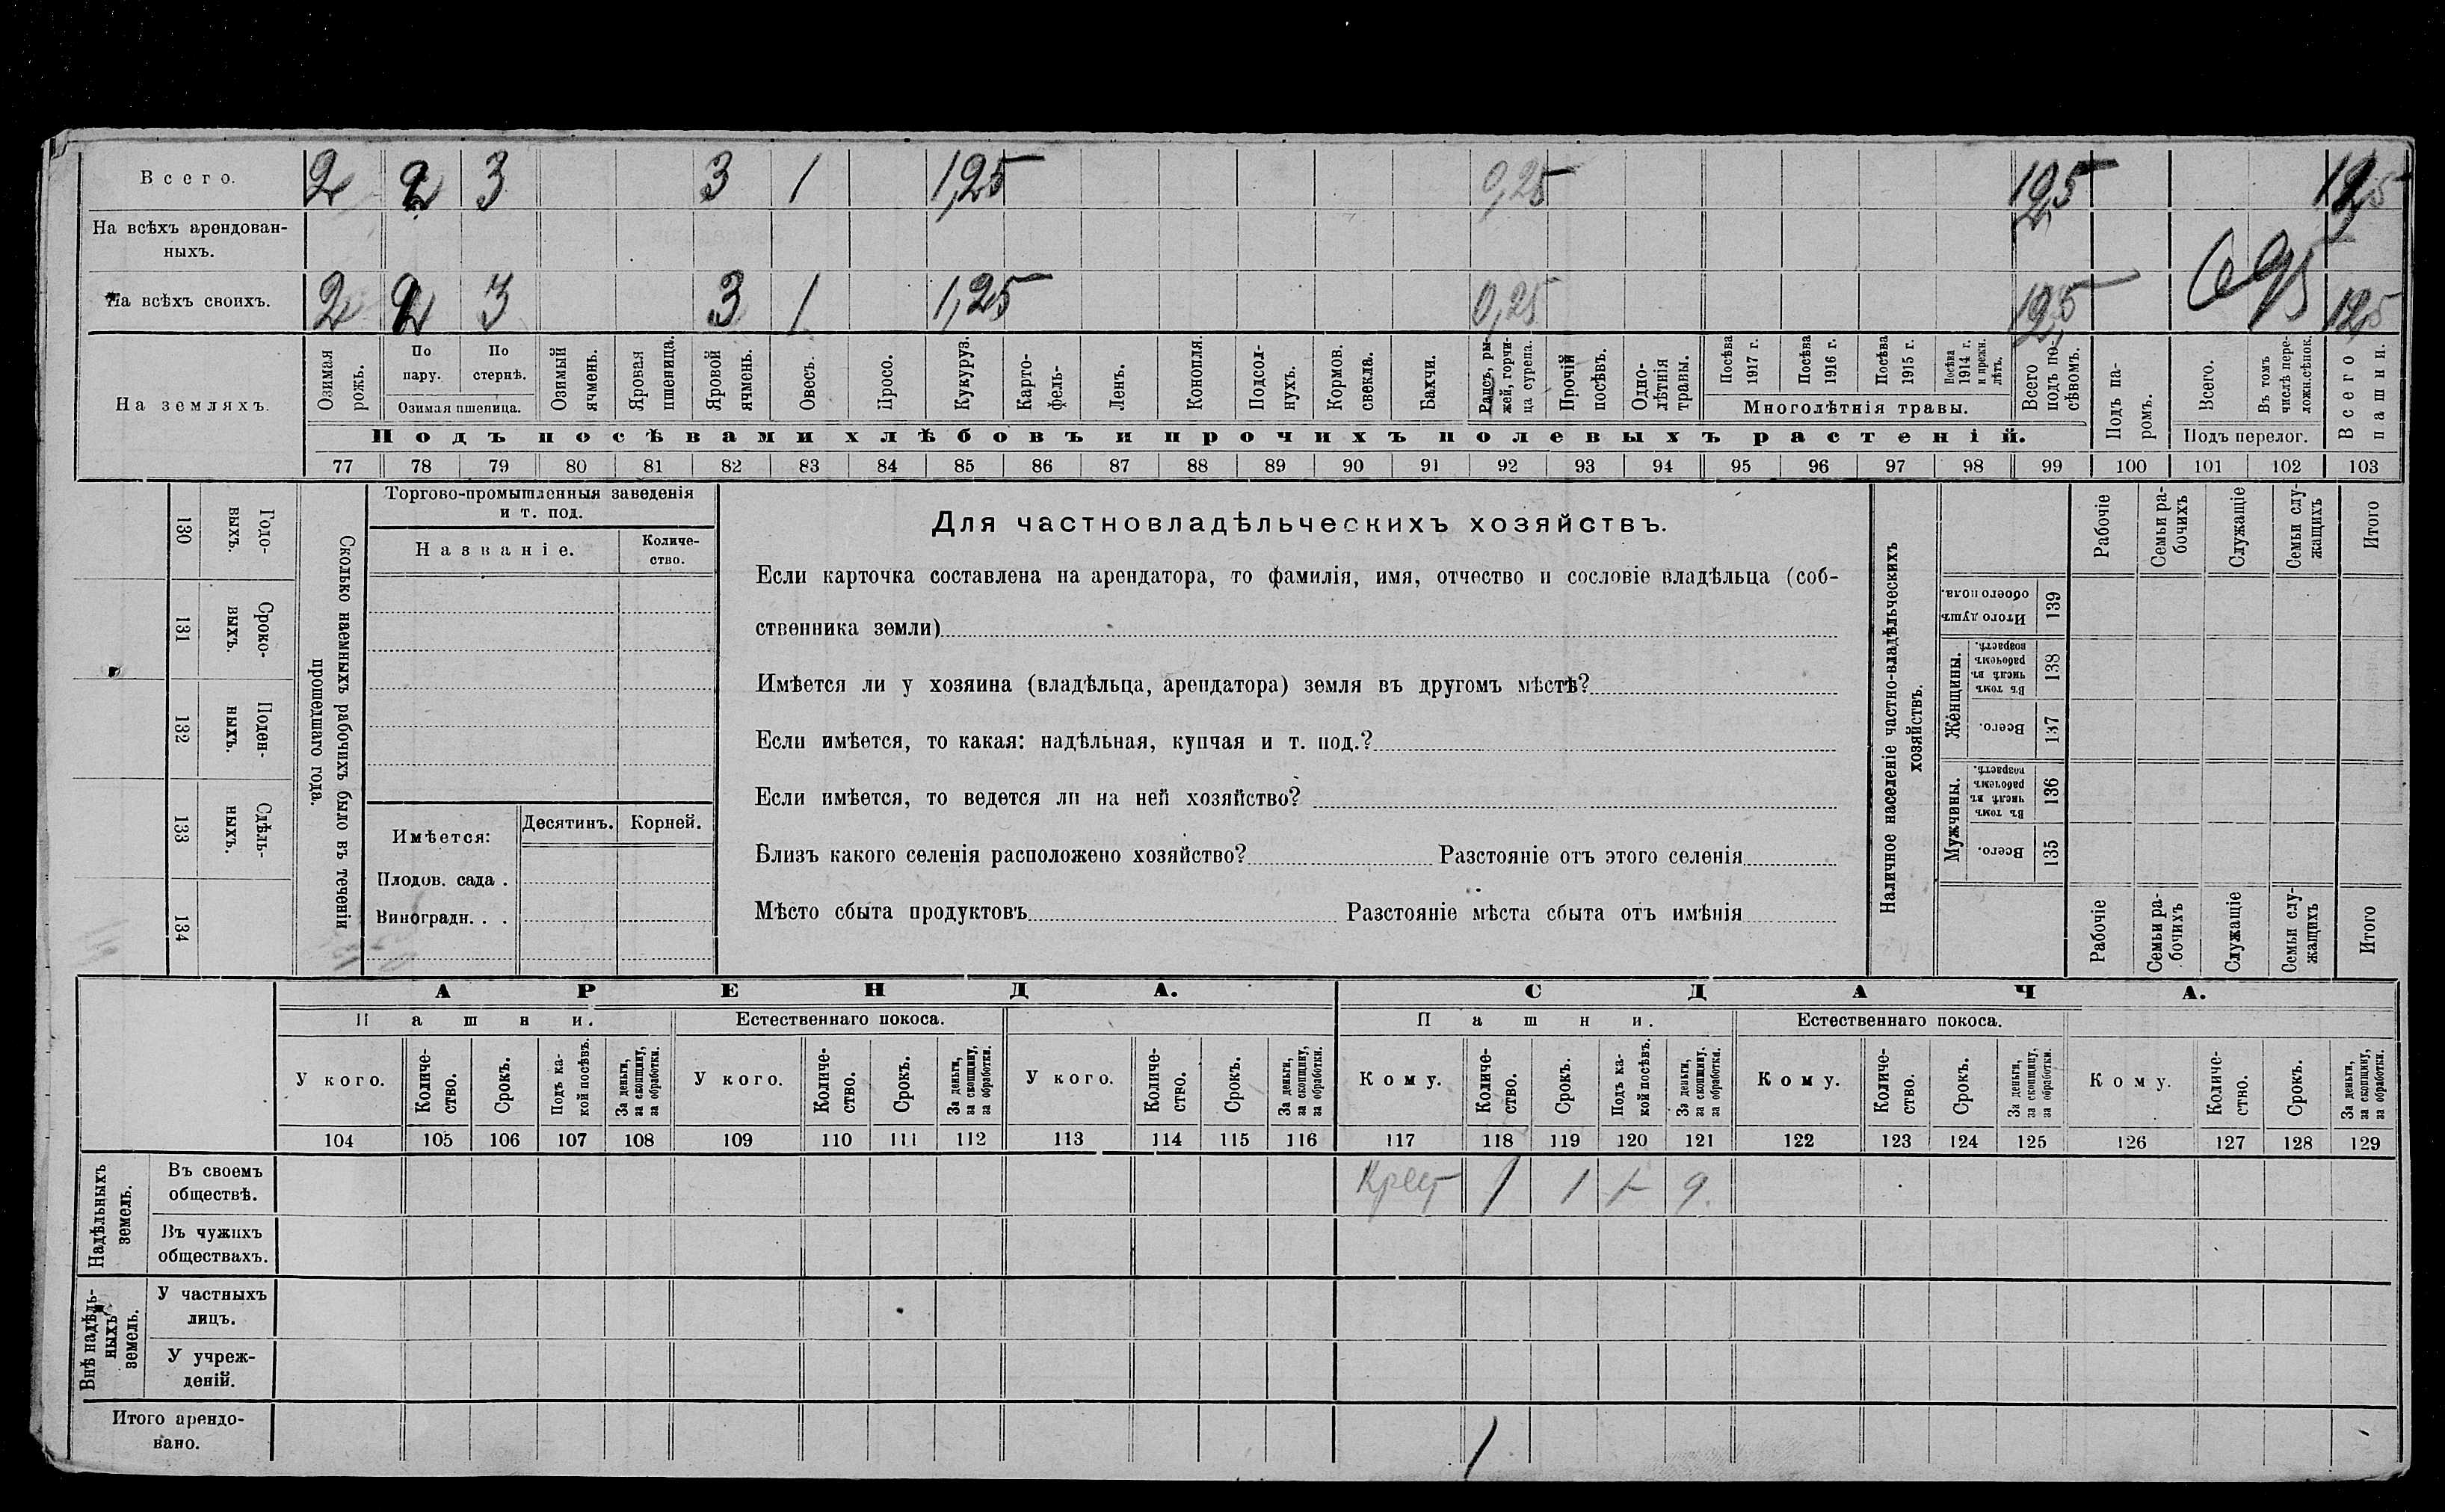 Всего. 2 2 3 3 1 1,25 0,25 12,5
На всѣхъ арендован-
ныхъ.
На всѣхъ своихъ. 2 2 3 3 1 1,25 0,25 12,5 12,5
На земляхъ.
Озимая рожь.
По пару.
По стернѣ.
Озимая пшеница.
Озимый ячмень.
Яровая пшеница.
Яровой ячмень.
Овесъ.
Просо.
Кукуруз.
Карто-
фель-
Ленъ.
Конопля.
Подсол-
нухъ.
Кормов. свекла.
Бахчи.
Рапсъ, ры-
жей, горчи-
ца сурепа.
Прочій посѣвъ.
Одно-
лѣтнія травы.
Посѣва 1917 г.
Посѣва 1916 г.
Посѣва 1915 г.
Посѣва 1914 г. и прежн. лѣтъ.
Многолѣтнія травы.
Всего подъ по-
сѣвомъ.
Подъ па-
ромъ.
Всего.
Въ томъ числѣ пере-
ложн.сѣнок.
Подъ перелог.
Всего пашни.
Подъ посѣвами хлѣбовъ и прочихъ полевыхъ растеній.
77 78 79 80 81 82 83 84 85 86 87 88 89 90 91 92 93 94 95 96 97 98 99 100 101 102 103
130 Годо-
выхъ.
131 Сроко-
выхъ.
132 Поден-
ныхъ.
133 Сдѣль-
ныхъ.
134
Сколько наемныхъ рабочихъ было въ теченіи
прошедшаго года.
Торгово-промышленныя заведенія
и т. под.
Названіе.
Количе-
ство.
Имѣется:
Десятинъ. Корней.
Плодов. сада .
Виноградн. . .
Для частновладѣльческихъ хозяйствъ.
Если карточка составлена на арендатора, то фамилія, имя, отчество и сословіе владѣльца (соб-
ственника земли)
Имѣется ли у хозяина (владѣльца, арендатора) земля въ другомъ мѣстѣ?
Если имѣется, то какая: надѣльная, купчая и т. под.?
Если имѣется, то ведется ли на ней хозяйство?
Близъ какого селенія расположено хозяйство? Разстояніе отъ этого селенія
Мѣсто сбыта продуктовъ Разстояніе мѣста сбыта отъ имѣнія
Наличное населеніе частно-владѣльческихъ
хозяйствъ.
Рабочіе
Семьи ра-
бочихъ
Служащіе
Семьи слу-
жащихъ
Итого
Итого душъ обоего пола. 139
Женщины.
Въ томъ числѣ въ рабочемъ возрастѣ. 138
Всего. 137
Мужчины.
Въ томъ числѣ въ рабочемъ возрастѣ. 136
Всего. 135
Рабочіе
Семьи ра-
бочихъ
Служащіе
Семьи слу-
жащихъ
Итого
АРЕНДА. СДАЧА.
Пашни. Естественнаго покоса. Пашни. Естественнаго покоса.
У кого.
Количе-
ство.
Срокъ.
Подъ ка-
кой посѣвъ.
За деньги, за скопщину, за обработки.
У кого.
Количе-
ство.
Срокъ.
За деньги, за скопщину, за обработки.
У кого.
Количе-
ство.
Срокъ.
За деньги, за скопщину, за обработки.
Кому.
Количе-
ство.
Срокъ.
Подъ ка-
кой посѣвъ.
За деньги, за скопщину. за обработки.
Кому.
Количе-
ство.
Срокъ.
За деньги, за скопщину, за обработки.
Кому.
Количе-
ство.
Срокъ.
За деньги, за скопщину, за обработки.
104 105 106 107 108 109 110 111 112 113 114 115 116 117 118 119 120 121 122 123 124 125 126 127 128 129
Надѣльныхъ
земель.
Въ своемъ
обществѣ.
Крест 1 1
Въ чужихъ
обществахъ.
Внѣ надѣль-
ныхъ
земель.
У частныхъ
лицъ.
У учреж-
деній.
Итого арендо-
вано.
1